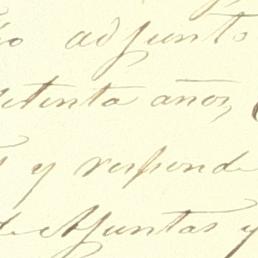 io adjunto
setenta años,
y responde
de Ajuntas y